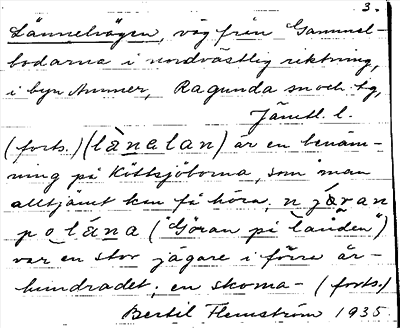 3.
Lännelvägen, väg från Gammel-
bodarna i nordvästlig riktning,
i byn Ammer, Ragunda sn och tg,
Jämtl. l.
(forts.) (lànalan) är en benäm-
ning på Köttsjöborna, som man
alltjämt kan få höra. njǽran
polána ("Göran på landen")
var en stor jägare i förra år-
hundradet; en skoma- (forts.)
Bertil Flemström 1935.